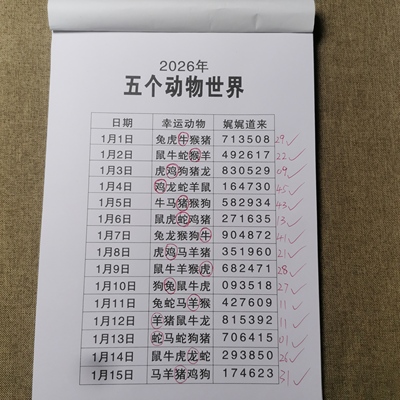 2026年
五个动物世界
日期 幸运动物 娓娓道来
1月1日 兔虎牛猴猪 713508 29✓
1月2日 鼠牛蛇猴羊 492617 22✓
1月3日 虎鸡狗猪龙 830529 09✓
1月4日 鸡龙蛇羊鼠 164730 45✓
1月5日 牛马猪猴狗 582934 43✓
1月6日 鼠虎蛇鸡猪 271635 13✓
1月7日 兔龙猴狗牛 904872 41✓
1月8日 虎鸡马羊猪 351960 21✓
1月9日 鼠牛羊猴虎 682471 28✓
1月10日 狗兔鼠牛虎 093518 27✓
1月11日 兔蛇马羊猴 427609 11✓
1月12日 羊猪鼠牛龙 815392 11✓
1月13日 蛇马蛇狗猪 706415 01✓
1月14日 鼠牛虎龙蛇 293850 26✓
1月15日 马羊猪鸡狗 174623 31✓